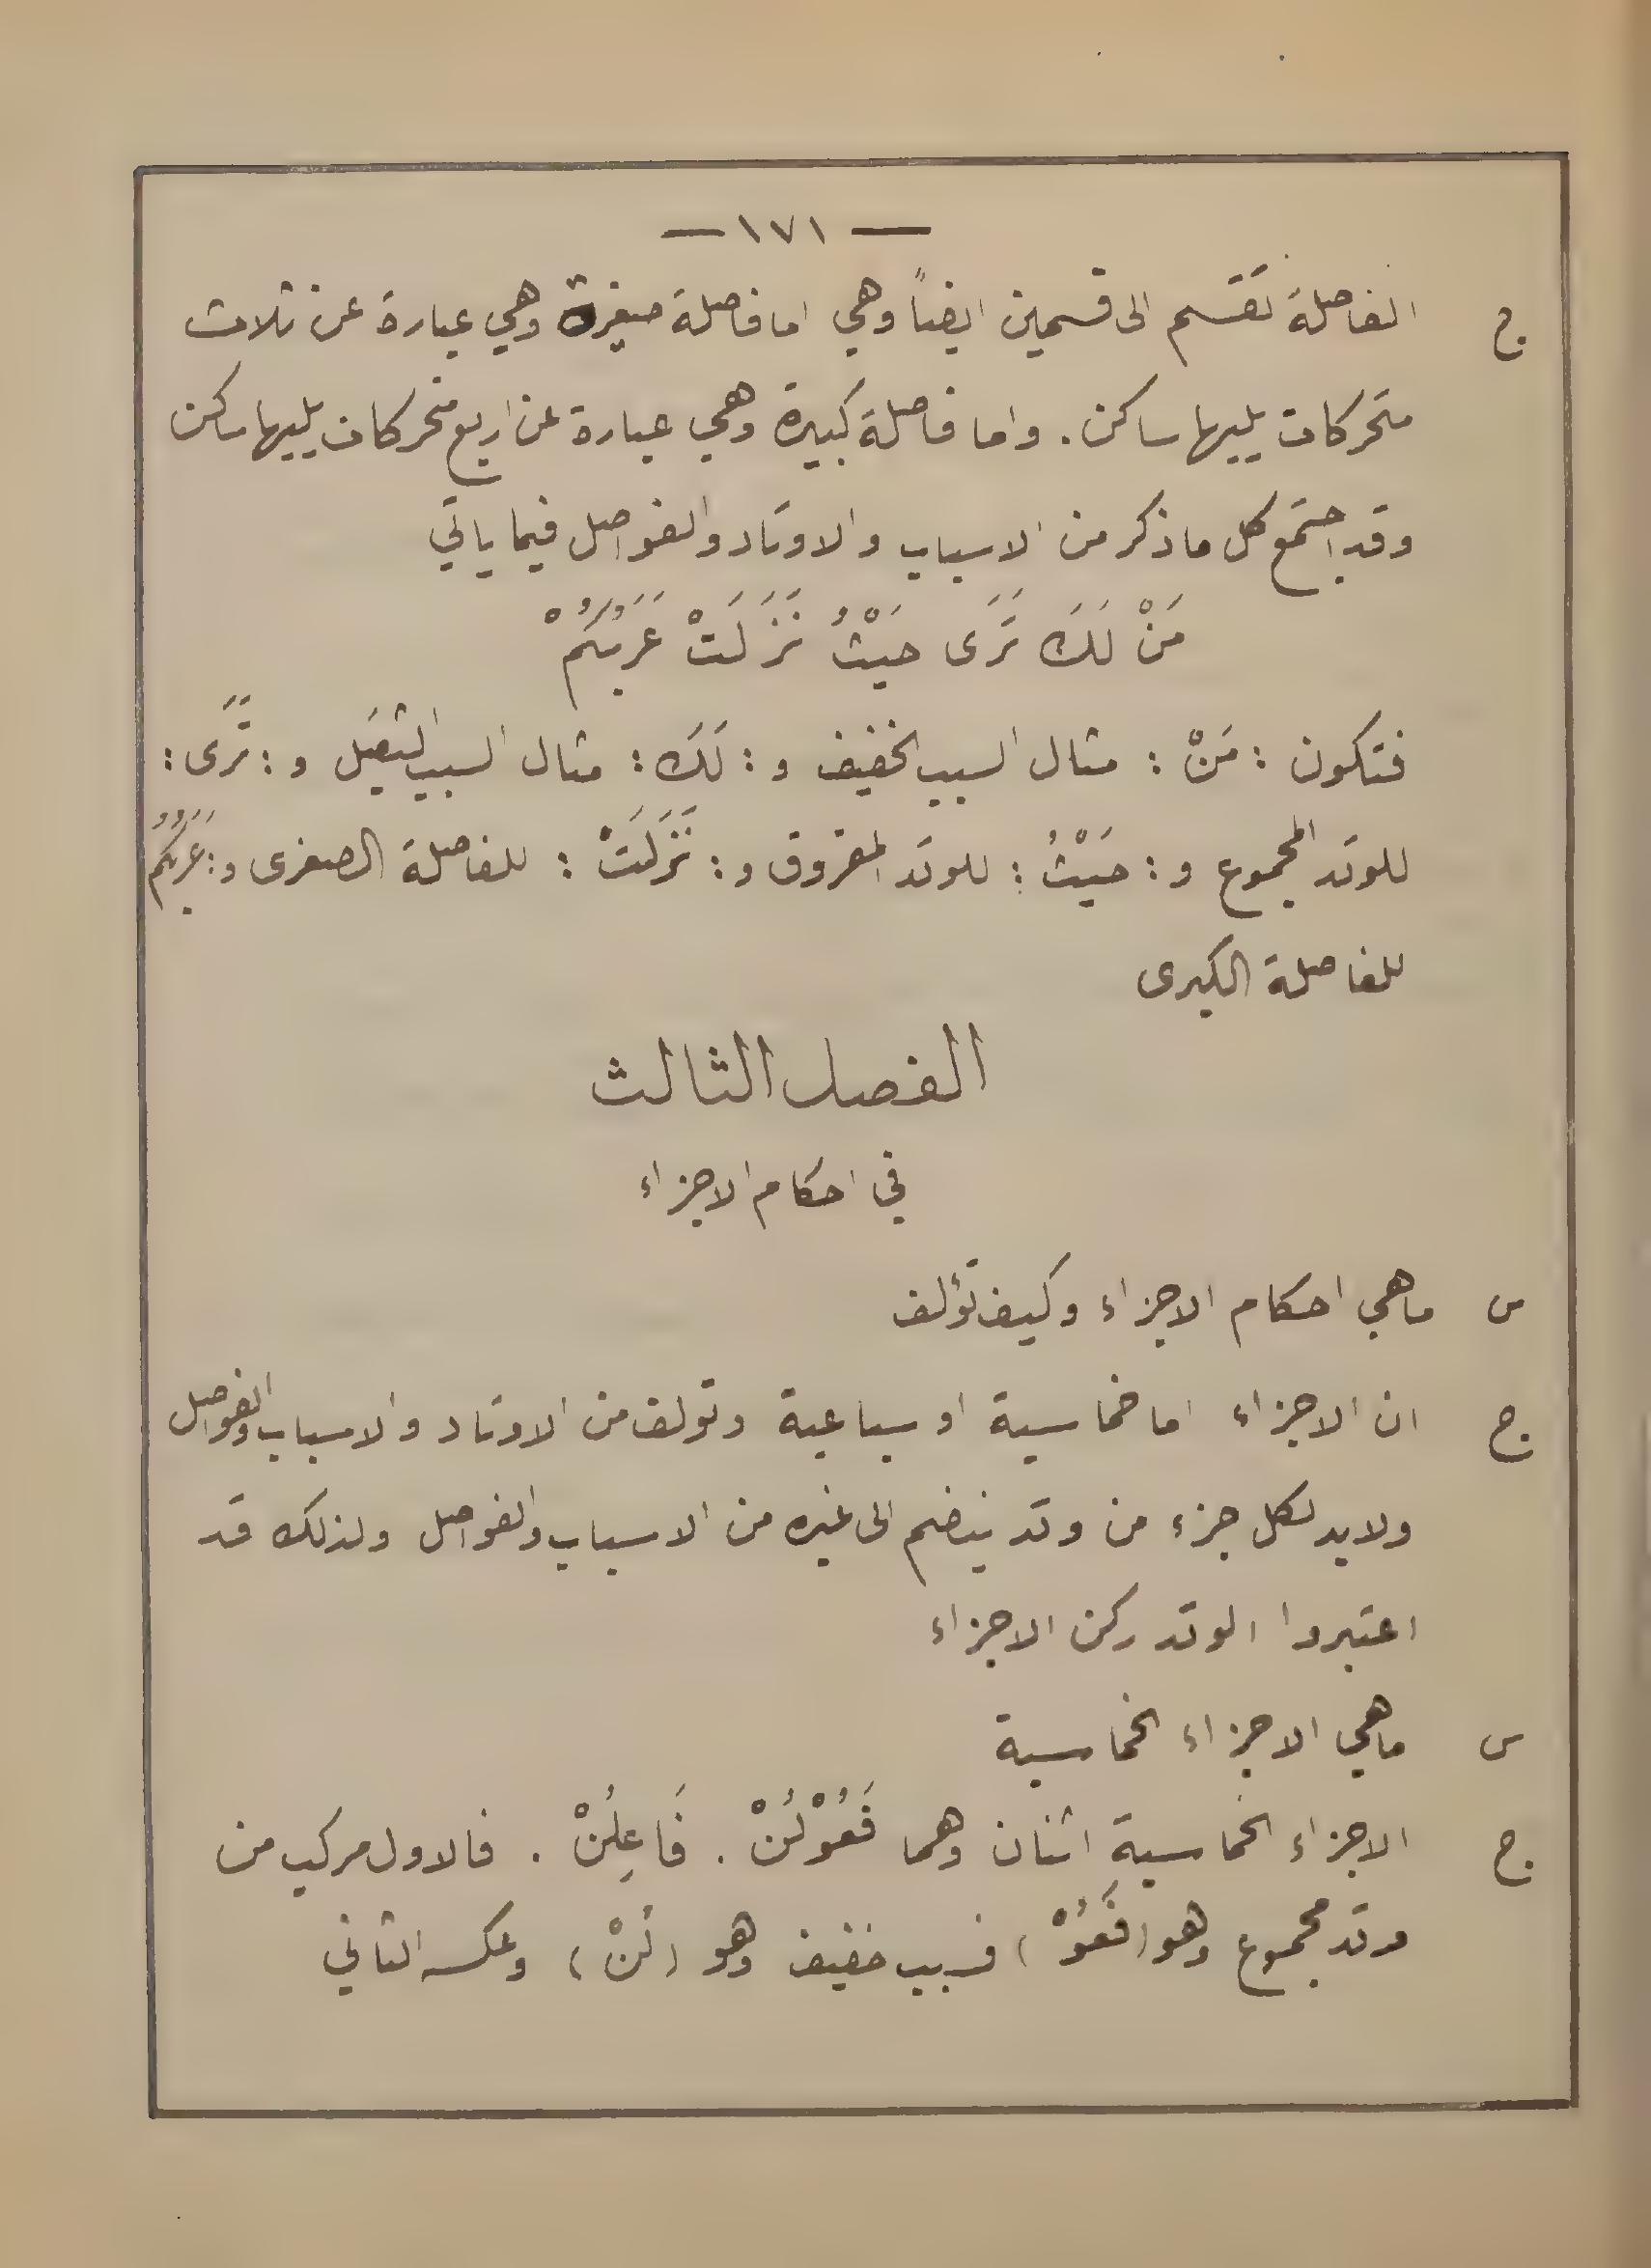 — ١٧١ —
ج الفاصلة تقسم الى قسمين ايضاً وهي اما فاصلة صغيرة وهي عبارة عن ثلاث
متحركات يليها ساكن . واما فاصلة كبيرة وهي عبارة عن اربع متحركات يليها ساكن
وقد اجتمع كل ما ذكر من الاسباب والاوتاد والفواصل فيما ياتي
مَنْ لَكَ تَرَى حَيْثُ نَزَلَتْ عَرَبُكُمْ
فتكون : مَنْ : مثال السبب الخفيف و : لَكَ : مثال السبب الثقيل و : تَرَى :
للوتد المجموع و : حَيْثُ : للوتد المفروق و : نَزَلَتْ : للفاصلة الصغرى و : عَرَبُكُمْ
للفاصلة الكبرى
الفصل الثالث
في احكام الاجزاء
س ما هي احكام الاجزاء وكيف تؤلف
ج ان الاجزاء اما خماسية او سباعية وتولف من الاوتاد والاسباب والفواصل
ولابد لكل جزء من وتد ينضم الى غيره من الاسباب والفواصل ولذلك قد
اعتبروا الوتد ركن الاجزاء
س ما هي الاجزاء الخماسية
ج الاجزاء الخماسية اثنان وهما فَعُوْلُنْ . فَاعِلُنْ . فالاول مركب من
وتد مجموع وهو (فَعُوْ) فسبب خفيف وهو (لُنْ) وعكسه الثاني